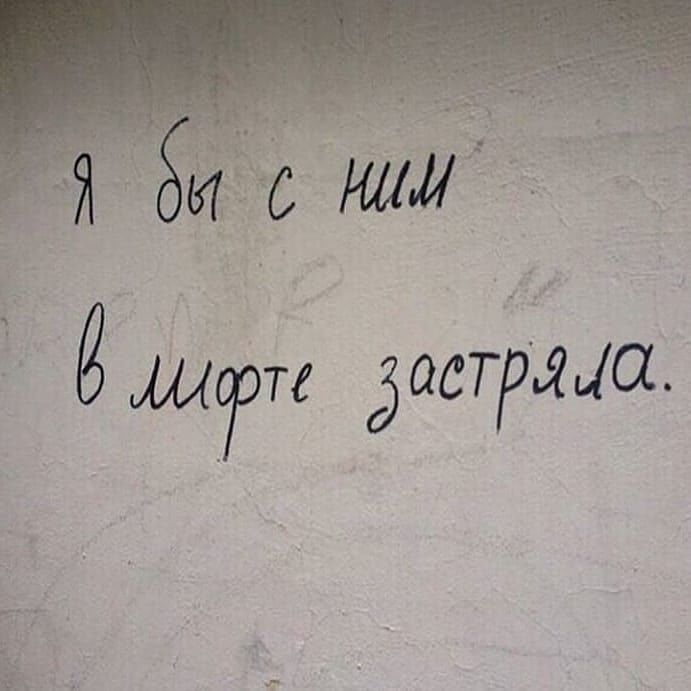 я бы с ним
в лифте застряла.